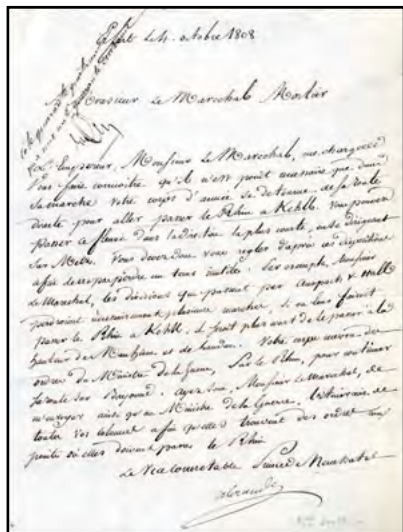 Erfurt le 4. octobre 1808
A Monsieur le Marechal Mortier
L'Empereur, Monsieur le Marechal, me charge de
vous faire connoitre qu'il n'est point necessaire que dans
sa marche votre corps d'armée se detourne de la route
directe pour aller passer le Rhin a Kehll. Vous pouvez
passer ce fleuve dans la direction la plus courte, en se dirigeant
sur Metz. Vous devez donc vous regler d'après ces dispositions
afin de ne pas perdre un tems inutile. Par exemple, Monsieur
le Marechal, les divisions qui passent par
perdroient necessairement plusieurs marches, si on leur faisoit
passer le Rhin a Kehll, il seroit plus court de le passer à la
hauteur de Manheim et de Landau. Votre corps recevra des
ordres du Ministre de la Guerre, sur le Rhin, pour continuer
sa route sur Bayonne. Ayez soin, Monsieur le Marechal, de
m'envoyer ainsi qu'au Ministre de la Guerre, l'itineraire de
toutes vos colonnes afin qu'elles trouvent des ordres aux
points où elles doivent passer le Rhin
Le Vice Connetable Prince de Neuchatel
Alexandre